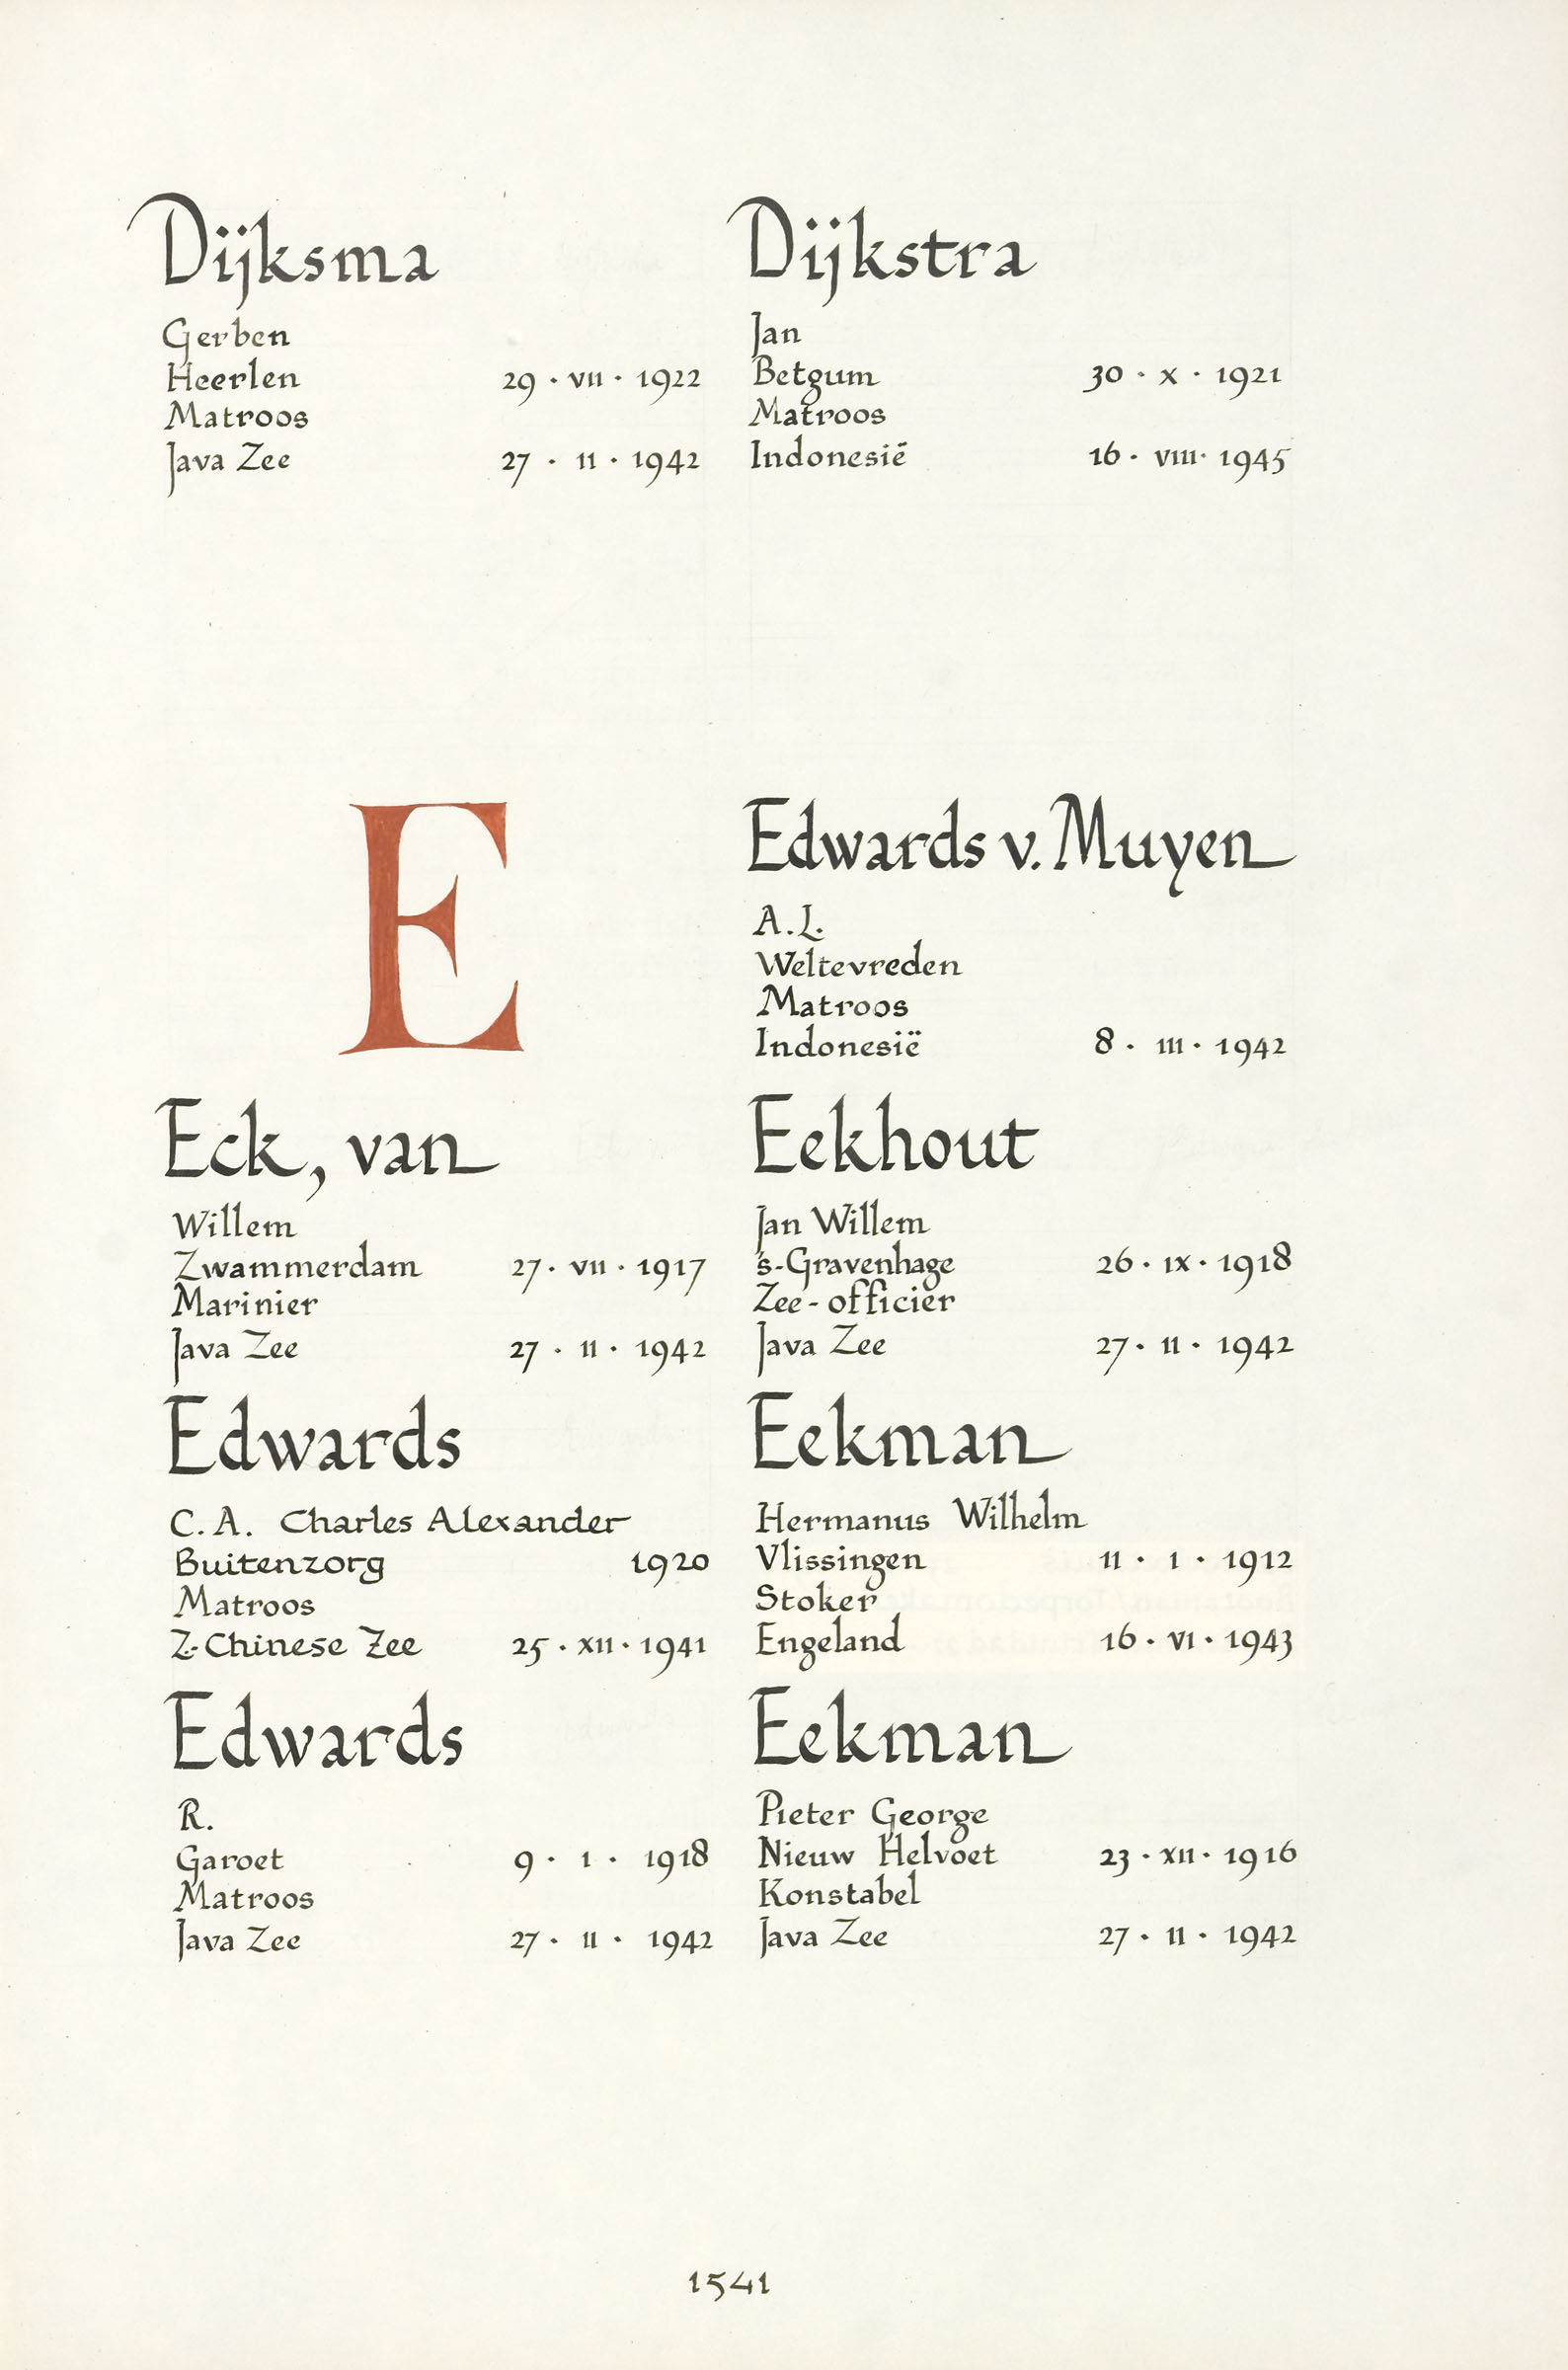 Dijksma
Gerben
Heerlen 29 · VII · 1922
Matroos
Java Zee 27 · II · 1942
Dijkstra
Jan
Betgum 30 · X · 1921
Matroos
Indonesië 16 · VIII · 1945
E
Eck, van
Willem
Zwammerdam 27 · VII · 1917
Marinier
Java Zee 27 · II · 1942
Edwards
C.A. Charles Alexander
Buitenzorg 1920
Matroos
Z-Chinese Zee 25 · XII · 1941
Edwards
R.
Garoet 9 · I · 1918
Matroos
Java Zee 27 · II · 1942
Edwards v. Muyen
A.L.
Weltevreden
Matroos
Indonesië 8 · III · 1942
Eekhout
Jan Willem
's-Gravenhage 26 · IX · 1918
Zee-officier
Java Zee 27 · II · 1942
Eekman
Hermanus Wilhelm
Vlissingen 11 · I · 1912
Stoker
Engeland 16 · VI · 1943
Eekman
Pieter George
Nieuw Helvoet 23 · XII · 1916
Konstabel
Java Zee 27 · II · 1942
1541